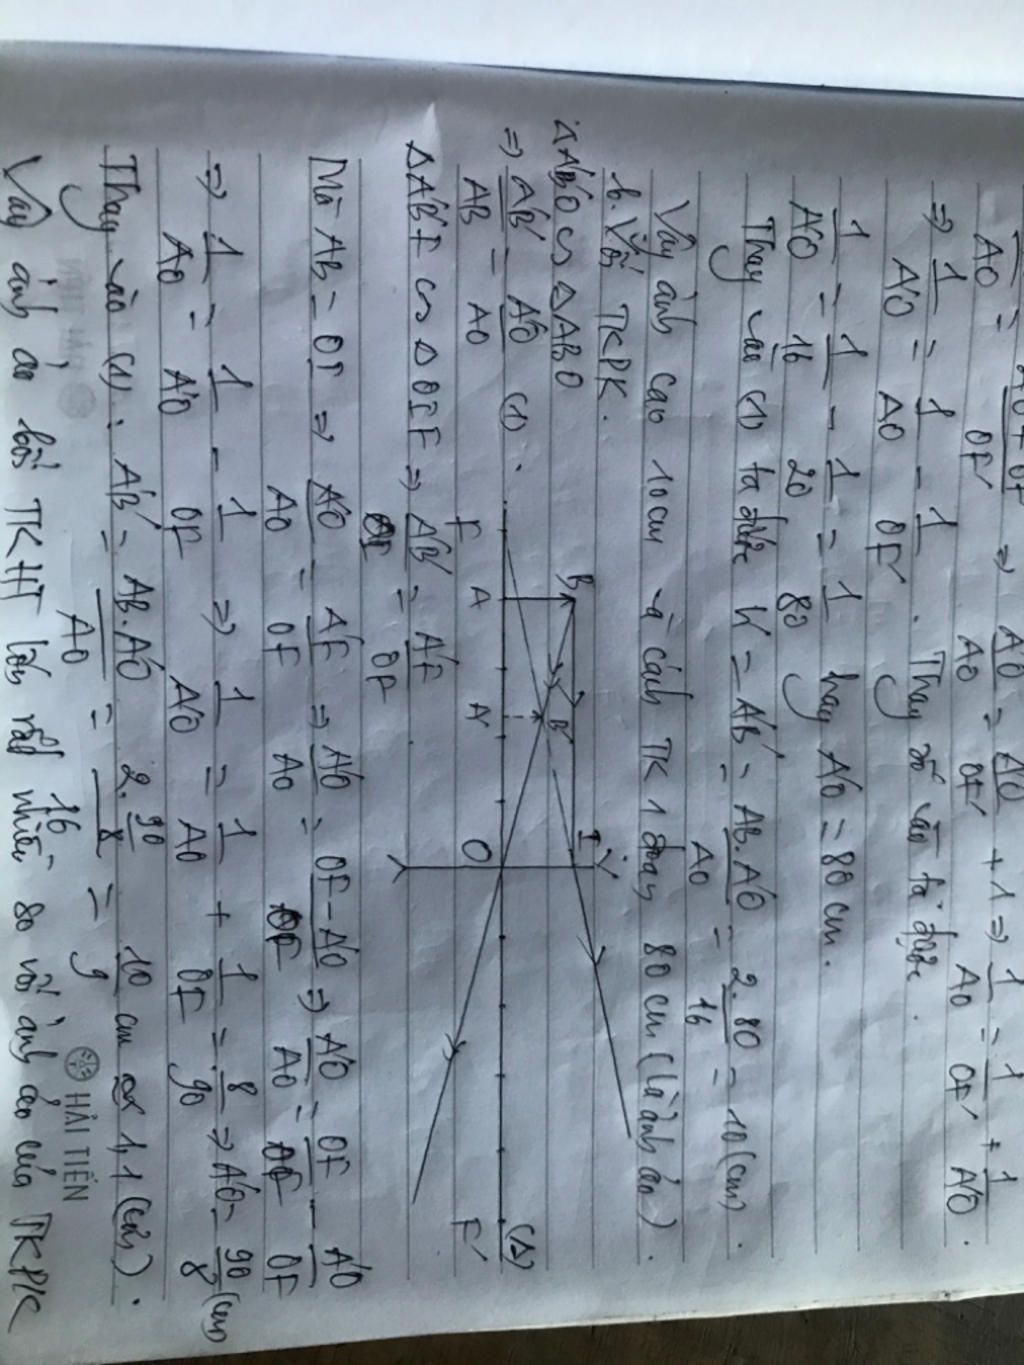 AO = OF'
⇒ 1/A'O = 1/AO - 1/OF'. Thay số vào ta được.
1/A'O = 1/16 - 1/20 = 1/80 hay A'O = 80 cm.
Thay vào (1) ta được h' = A'B' = AB.A'O/AO = 2.80/16 = 10 (cm).
Vậy ảnh cao 10cm và cách TK 1 đoạn 80 cm (là ảnh ảo).
b. Với TKPK.
ΔA'B'O ∽ ΔABO
⇒ A'B'/AB = A'O/AO (1).
B B' I
F A A' O F' (Δ)
ΔA'B'F ∽ ΔOIF ⇒ A'B'/OI = A'F/OF
Mà AB = OI ⇒ A'O/AO = A'F/OF ⇒ A'O/AO = OF-A'O/OF ⇒ A'O/AO = OF/OF - A'O/OF
⇒ 1/AO = 1/A'O - 1/OF ⇒ 1/A'O = 1/AO + 1/OF = 8/90 ⇒ A'O = 90/8 (cm)
Thay vào (1): A'B' = AB.A'O/AO = 2.90/8/16 = 10/9 cm 1,1 (cm).
Vậy ảnh ảo bởi TKHT lớn rất nhiều so với ảnh ảo của TKPK
HẢI TIẾN